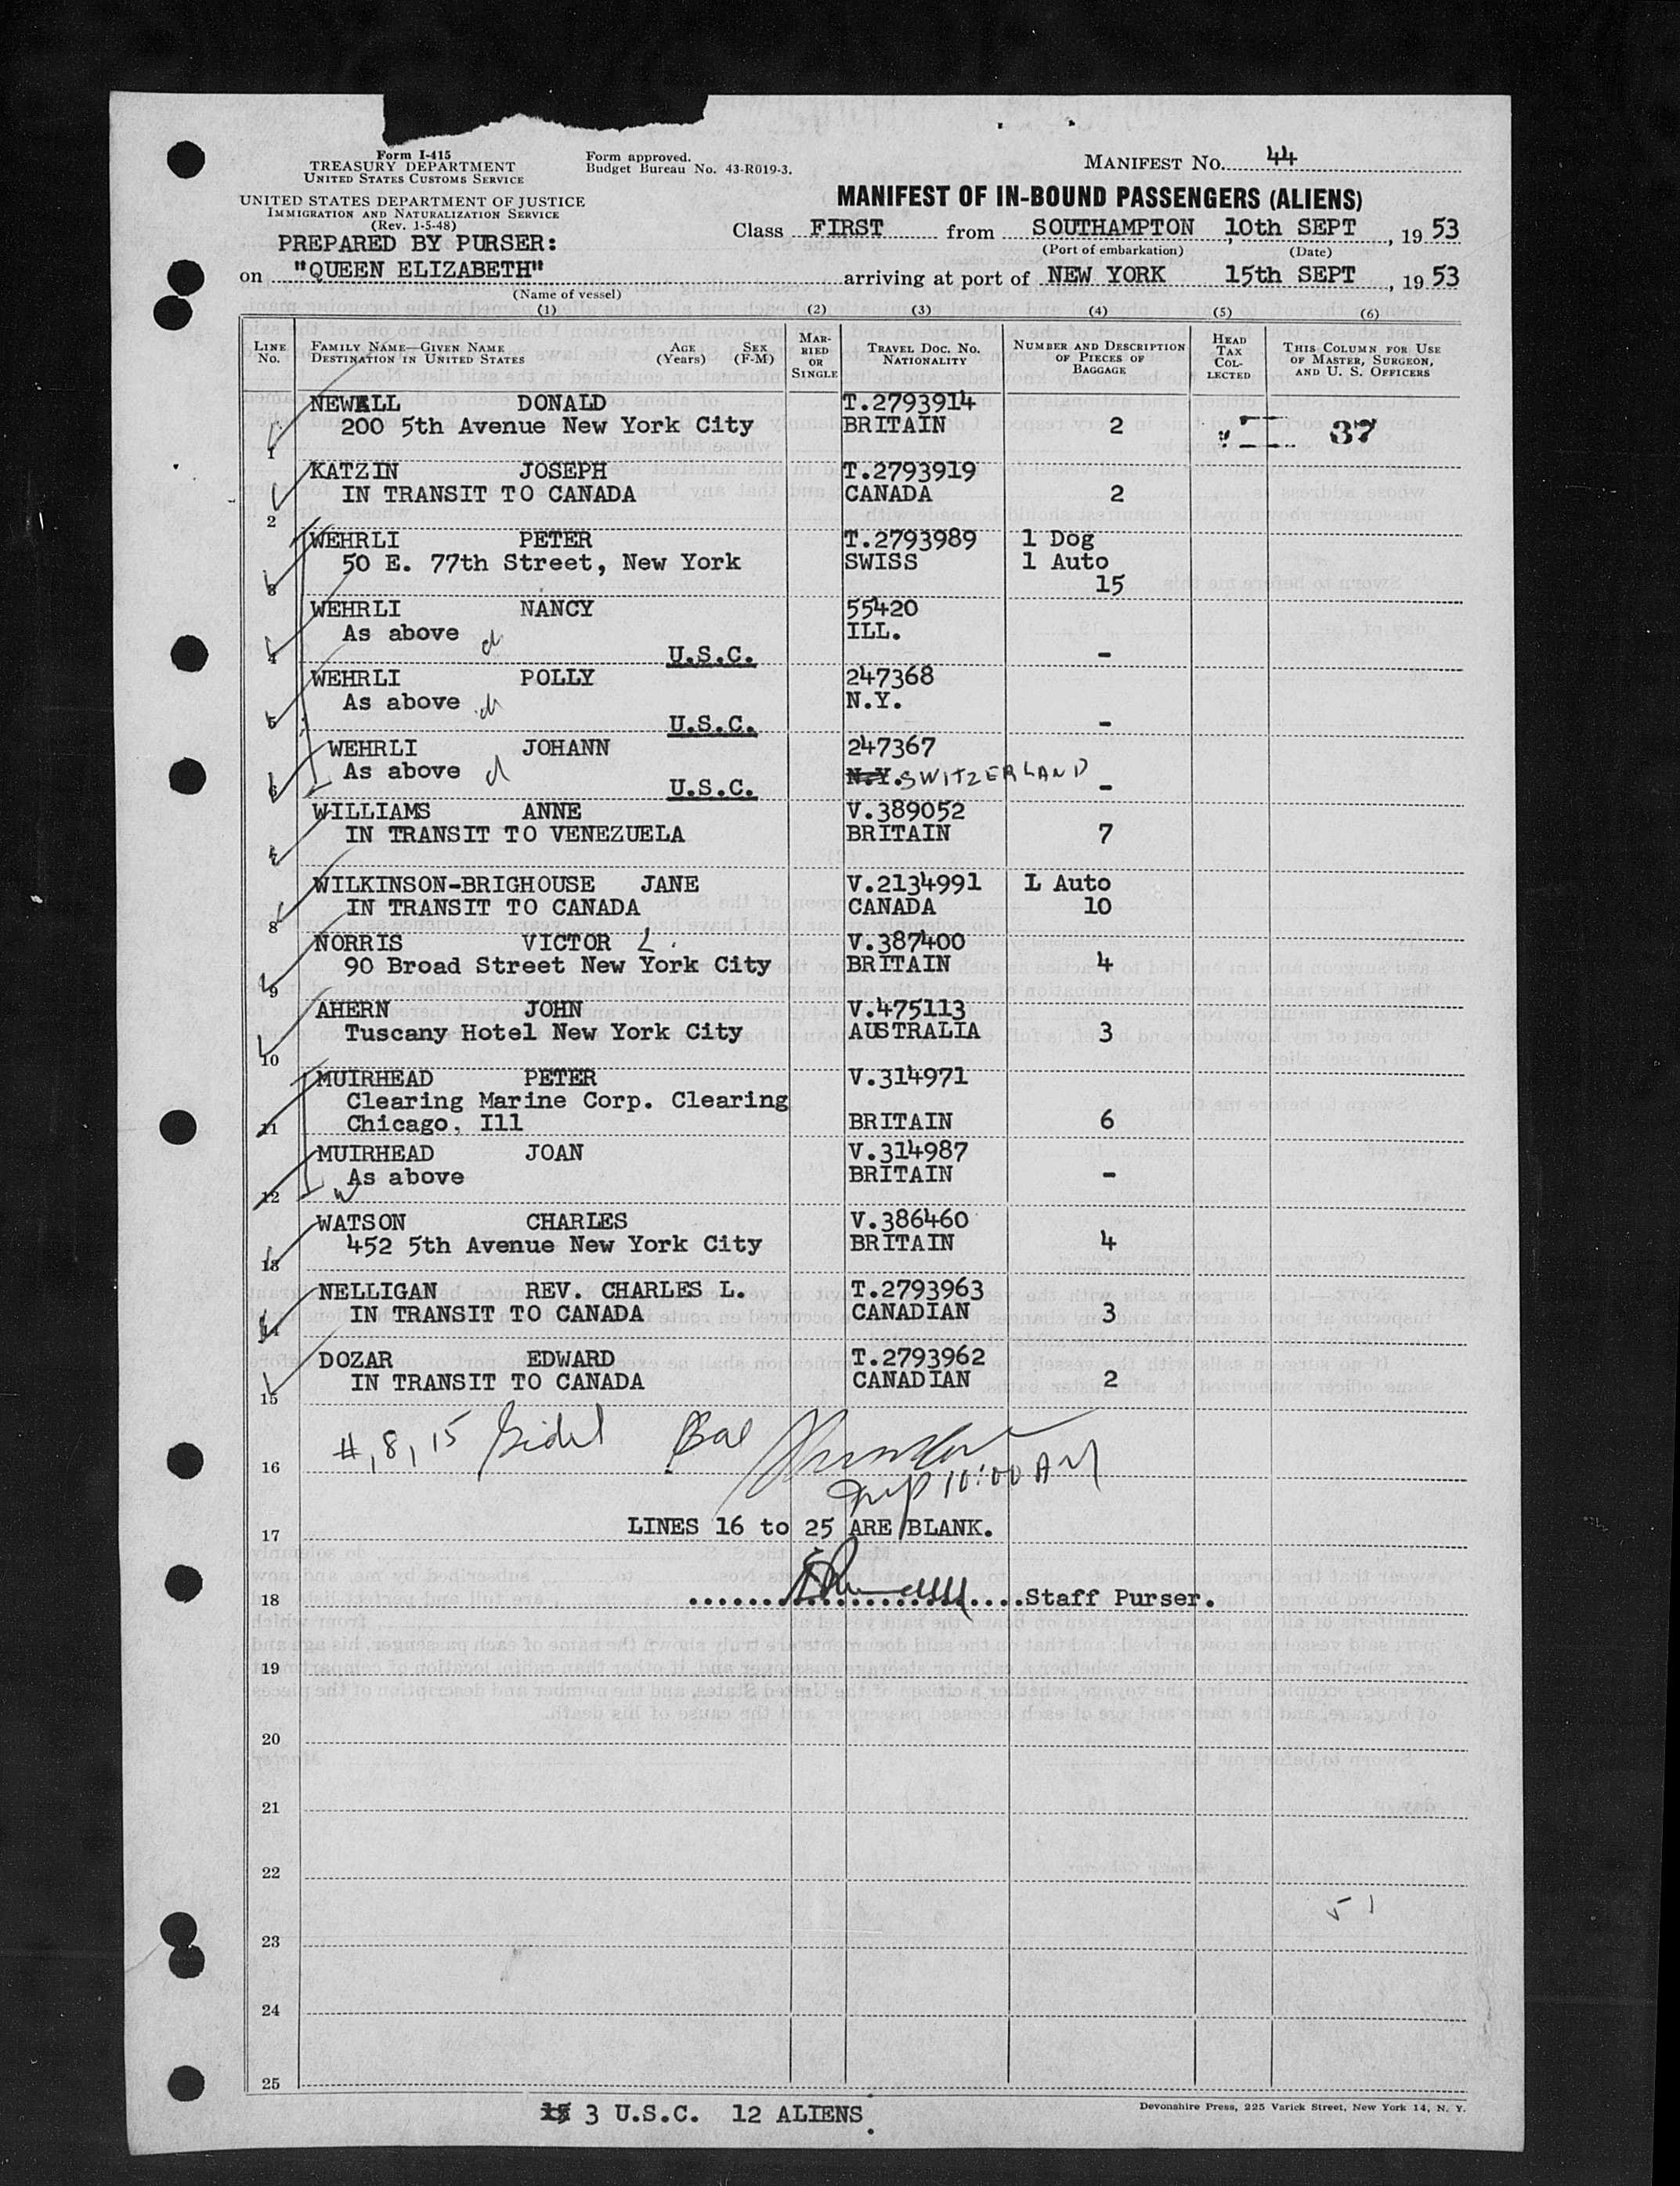 Form I-415
TREASURY DEPARTMENT
UNITED STATES CUSTOMS SERVICE
Form approved.
Budget Bureau No. 43-R019-3.
MANIFEST NO. 44
UNITED STATES DEPARTMENT OF JUSTICE
IMMIGRATION AND NATURALIZATION SERVICE
(Rev. 1-5-48)
MANIFEST OF IN-BOUND PASSENGERS (ALIENS)
PREPARED BY PURSER:
Class FIRST from SOUTHAMPTON, 10th SEPT, 19 53
(Port of embarkation) (Date)
on "QUEEN ELIZABETH" arriving at port of NEW YORK 15th SEPT, 19 53
(Name of vessel)
(1) (2) (3) (4) (5) (6)
LINE No.
FAMILY NAME—GIVEN NAME
DESTINATION IN UNITED STATES
AGE (Years)
SEX (F-M)
MARRIED OR SINGLE
TRAVEL DOC. NO. NATIONALITY
NUMBER AND DESCRIPTION OF PIECES OF BAGGAGE
HEAD TAX COLLECTED
THIS COLUMN FOR USE OF MASTER, SURGEON, AND U. S. OFFICERS
NEWALL DONALD T.2793914
200 5th Avenue New York City BRITAIN 2 37
1
KATZIN JOSEPH T.2793919
IN TRANSIT TO CANADA CANADA 2
2
WEHRLI PETER T.2793989 1 Dog
50 E. 77th Street, New York SWISS 1 Auto
3 15
WEHRLI NANCY 55420
As above d ILL.
4 U.S.C. -
WEHRLI POLLY 247368
As above d N.Y.
5 U.S.C. -
WEHRLI JOHANN 247367
As above d N.Y. SWITZERLAND
6 U.S.C. -
WILLIAMS ANNE V.389052
IN TRANSIT TO VENEZUELA BRITAIN 7
7
WILKINSON-BRIGHOUSE JANE V.2134991 1 Auto
IN TRANSIT TO CANADA CANADA 10
8
NORRIS VICTOR L. V.387400
90 Broad Street New York City BRITAIN 4
9
AHERN JOHN V.475113
Tuscany Hotel New York City AUSTRALIA 3
10
MUIRHEAD PETER V.314971
Clearing Marine Corp. Clearing
11 Chicago, Ill BRITAIN 6
MUIRHEAD JOAN V.314987
As above BRITAIN -
12 w
WATSON CHARLES V.386460
452 5th Avenue New York City BRITAIN 4
13
NELLIGAN REV. CHARLES L. T.2793963
IN TRANSIT TO CANADA CANADIAN 3
14
DOZAR EDWARD T.2793962
IN TRANSIT TO CANADA CANADIAN 2
15
#, 8, 15 Bal
16 10:00 AM
LINES 16 to 25 ARE BLANK.
17
18 Staff Purser.
19
20
21
22
51
23
24
25
3 U.S.C. 12 ALIENS
Devonshire Press, 225 Varick Street, New York 14, N. Y.